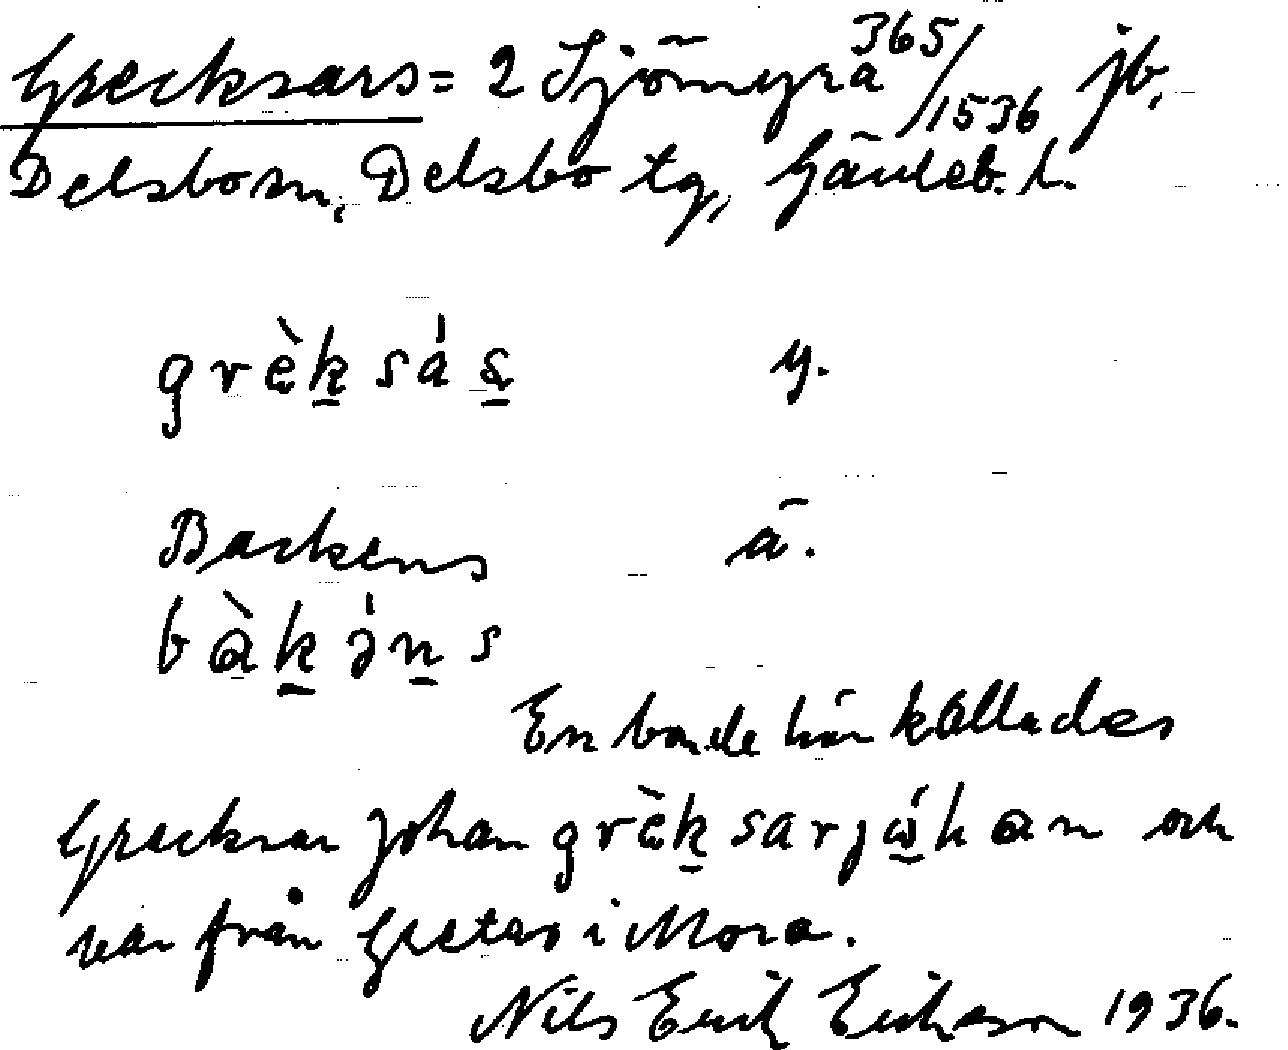 Grecksars = 2 Sjömyra 365/1536 jb,
Delsbo sn, Delsbo tg, Gävleb. l.
grèk̠sás̠ y.
Backens ä.
bàk̠ən̠s
En bonde här kallades
Grecksar Johan grèk̠sarjώhan och
var från Gretas i Mora.
Nils Erik Erikson 1936.